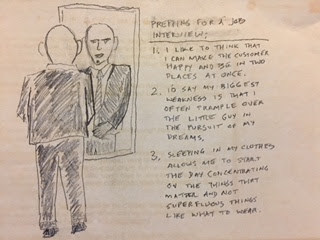 PREPPING FOR A JOB
INTERVIEW;
1. I LIKE TO THINK THAT
I CAN MAKE THE CUSTOMER
HAPPY AND BE IN TWO
PLACES AT ONCE.
2. I'D SAY MY BIGGEST
WEAKNESS IS THAT I
OFTEN TRAMPLE OVER
THE LITTLE GUY IN
THE PURSUIT OF MY
DREAMS.
3. SLEEPING IN MY CLOTHES
ALLOWS ME TO START
THE DAY CONCENTRATING
ON THE THINGS THAT
MATTER AND NOT
SUPERFLUOUS THINGS
LIKE WHAT TO WEAR.